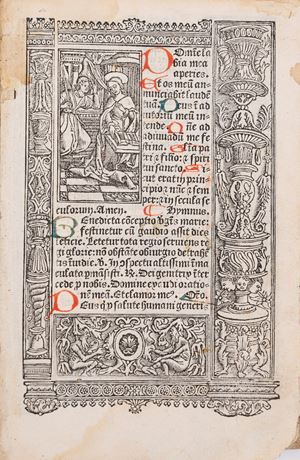 Domine la
bia mea
aperies.
Et os meũ an
nunciabit laudẽ
tuã. Deus ad
adiutoriũ
meũ in
tende. Dñe ad
adiuuãdũ me fe
stina. Gl'ia pa
tri z filio: z spiri
tui sancto. Si
cut erat in prin
cipio z nũc z sem
per: z in secula se
culorum. Amen. Hymnus.
Benedicta cõceptio v̾gĩs marie:
festinetur cũ gaudio assit dies
leticie. Letetur tota regio seruiens regi
glorie: nõ obstãte obiurgio detrahẽ
tis inuidie. V. In cõspectu altissimi ĩma
culata pmãsisti. R. Dei genitrix ĩter
cede p nobis. Domine exaudi oratio
nẽ meã. Et clamor me? Or̃o.
Deus q̃ p salutẽ humani generis